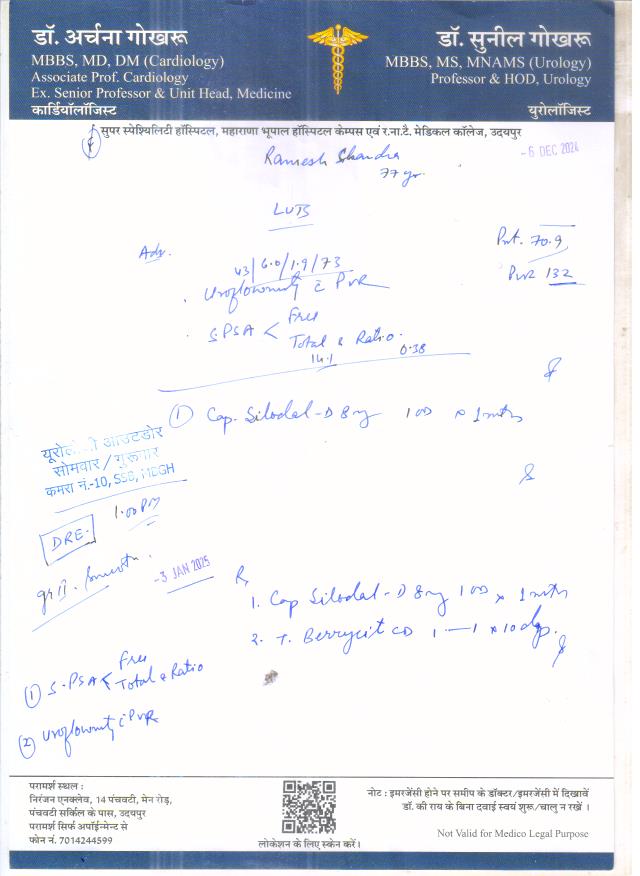 डॉ. अर्चना गोखरू
MBBS, MD, DM (Cardiology)
Associate Prof. Cardiology
Ex. Senior Professor & Unit Head, Medicine
कार्डियॉलॉजिस्ट
डॉ. सुनील गोखरू
MBBS, MS, MNAMS (Urology)
Professor & HOD, Urology
युरोलॉजिस्ट
सुपर स्पेश्यिलिटी हॉस्पिटल, महाराणा भूपाल हॉस्पिटल केम्पस एवं र.ना.टै. मेडिकल कॉलेज, उदयपुर
Ramesh Chandra
77 yr.
-6 DEC 2024
LUTS
Adv.
Prt. 70.9
PVR 132
43/6.0/1.9/73
Uroflowmetry c PVR
S. PSA < Free
Total & Ratio.
14.1 0.38
① Cap. Silodal-D 8mg 1OD x 1mth
यूरोलोजी आउटडोर
सोमवार / गुरूवार
कमरा नं.-10, SSB, MBGH
1.00 PM
DRE.
gr II.
-3 JAN 2025
R
1. Cap Silodal-D 8mg 1OD x 1mth
2. T. Berrycit CD 1—1 x 10 dys.
① S. PSA < Free
Total & Ratio
② Uroflowmetry c PVR
परामर्श स्थल :
निरंजन एनक्लेव, 14 पंचवटी, मेन रोड़,
पंचवटी सर्किल के पास, उदयपुर
परामर्श सिर्फ अपॉईनमेन्ट से
फोन नं. 7014244599
लोकेशन के लिए स्केन करें।
नोट : इमरजेंसी होने पर समीप के डॉक्टर/इमरजेंसी में दिखावें
डॉ. की राय के बिना दवाई स्वयं शुरू/चालु न रखें ।
Not Valid for Medico Legal Purpose